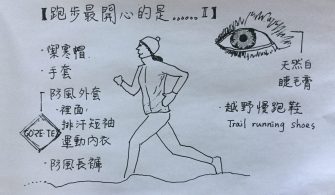 【跑步最開心的是……Ⅱ】
·禦寒帽
·手套
·防風外套
裡面:
排汗短袖
運動內衣
·防風長褲
GORE-TEX
天然白
睫毛膏
·越野慢跑鞋
Trail running shoes